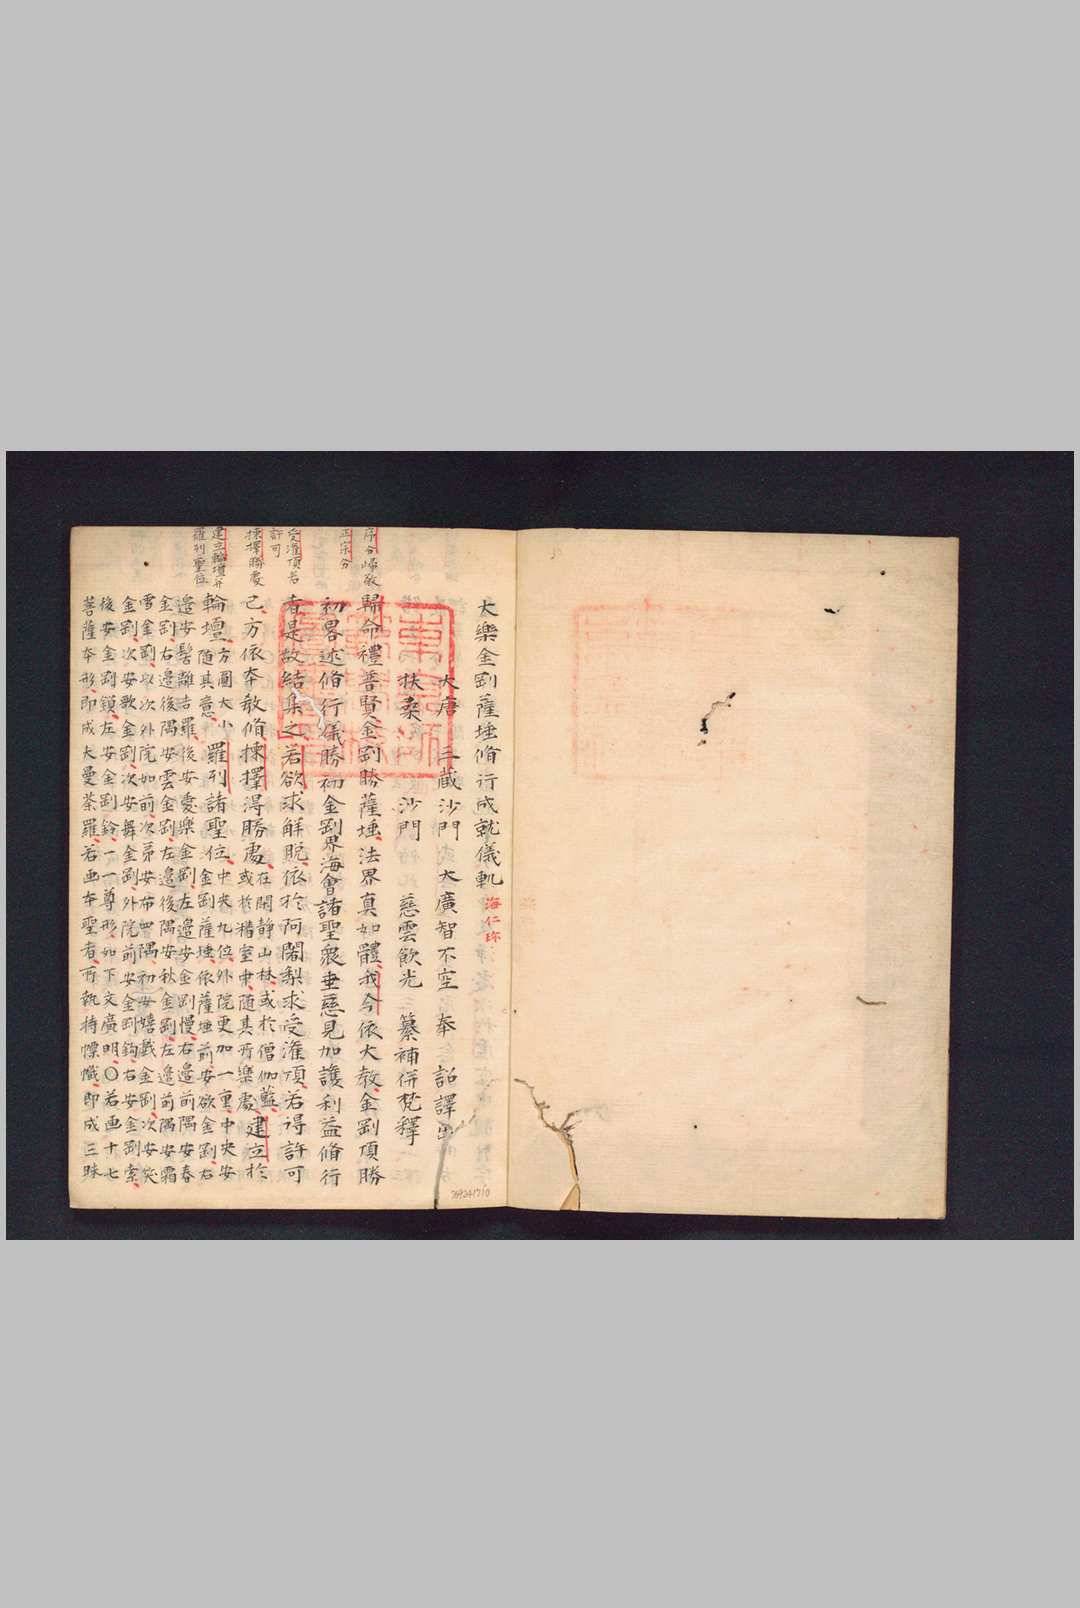 大樂金剛薩埵脩行成就儀軌 海仁珎
大唐 三藏沙門 大廣智不空 奉 詔譯出
扶桑 沙門 慈雲飲光 纂補併梵釋
序分歸敬
歸命禮普賢金剛勝薩埵法界真如體我今依大教金剛頂勝
正宗分
初畧述脩行儀勝初金剛界海會諸聖衆垂慈見加護利益脩行
受灌頂若
許可
者是故結集之若欲求解脫依於阿闍梨求受灌頂若得許可
揀擇勝處
已方依本教脩揀擇得勝處在閑静山林或於僧伽藍
或於精室中随其所樂處建立於
建立輪壇并
羅列聖位
輪壇方圓大小
随其意羅列諸聖位中央九位外院更加一重中央安
金剛薩埵依薩埵前安欲金剛右
邉安髻離吉羅後安愛樂金剛左邉安金剛慢右邉前隅安春
金剛右邉後隅安雲金剛左邉後隅安秋金剛左邉前隅安霜
雪金剛以次外院如前次苐安布四隅初安嬉戲金剛次安笑
金剛次安歌金剛次安舞金剛外院前安金剛鈎右安金剛索
後安金剛鎖左安金剛鈴一一尊形如下文廣明〇若画十七
菩薩本形即成大曼荼羅若画本聖者所執持幖幟即成三昧
769241710